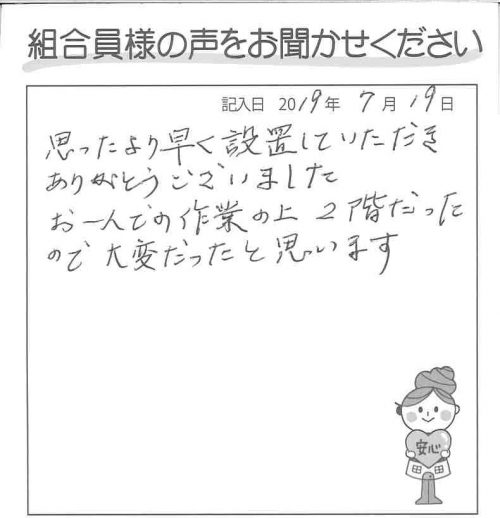 組合員様の声をお聞かせください
記入日 2019年 7月 19日
思ったより早く設置していただき
ありがとうございました
お一人での作業の上 2階だった
ので大変だったと思います
安心